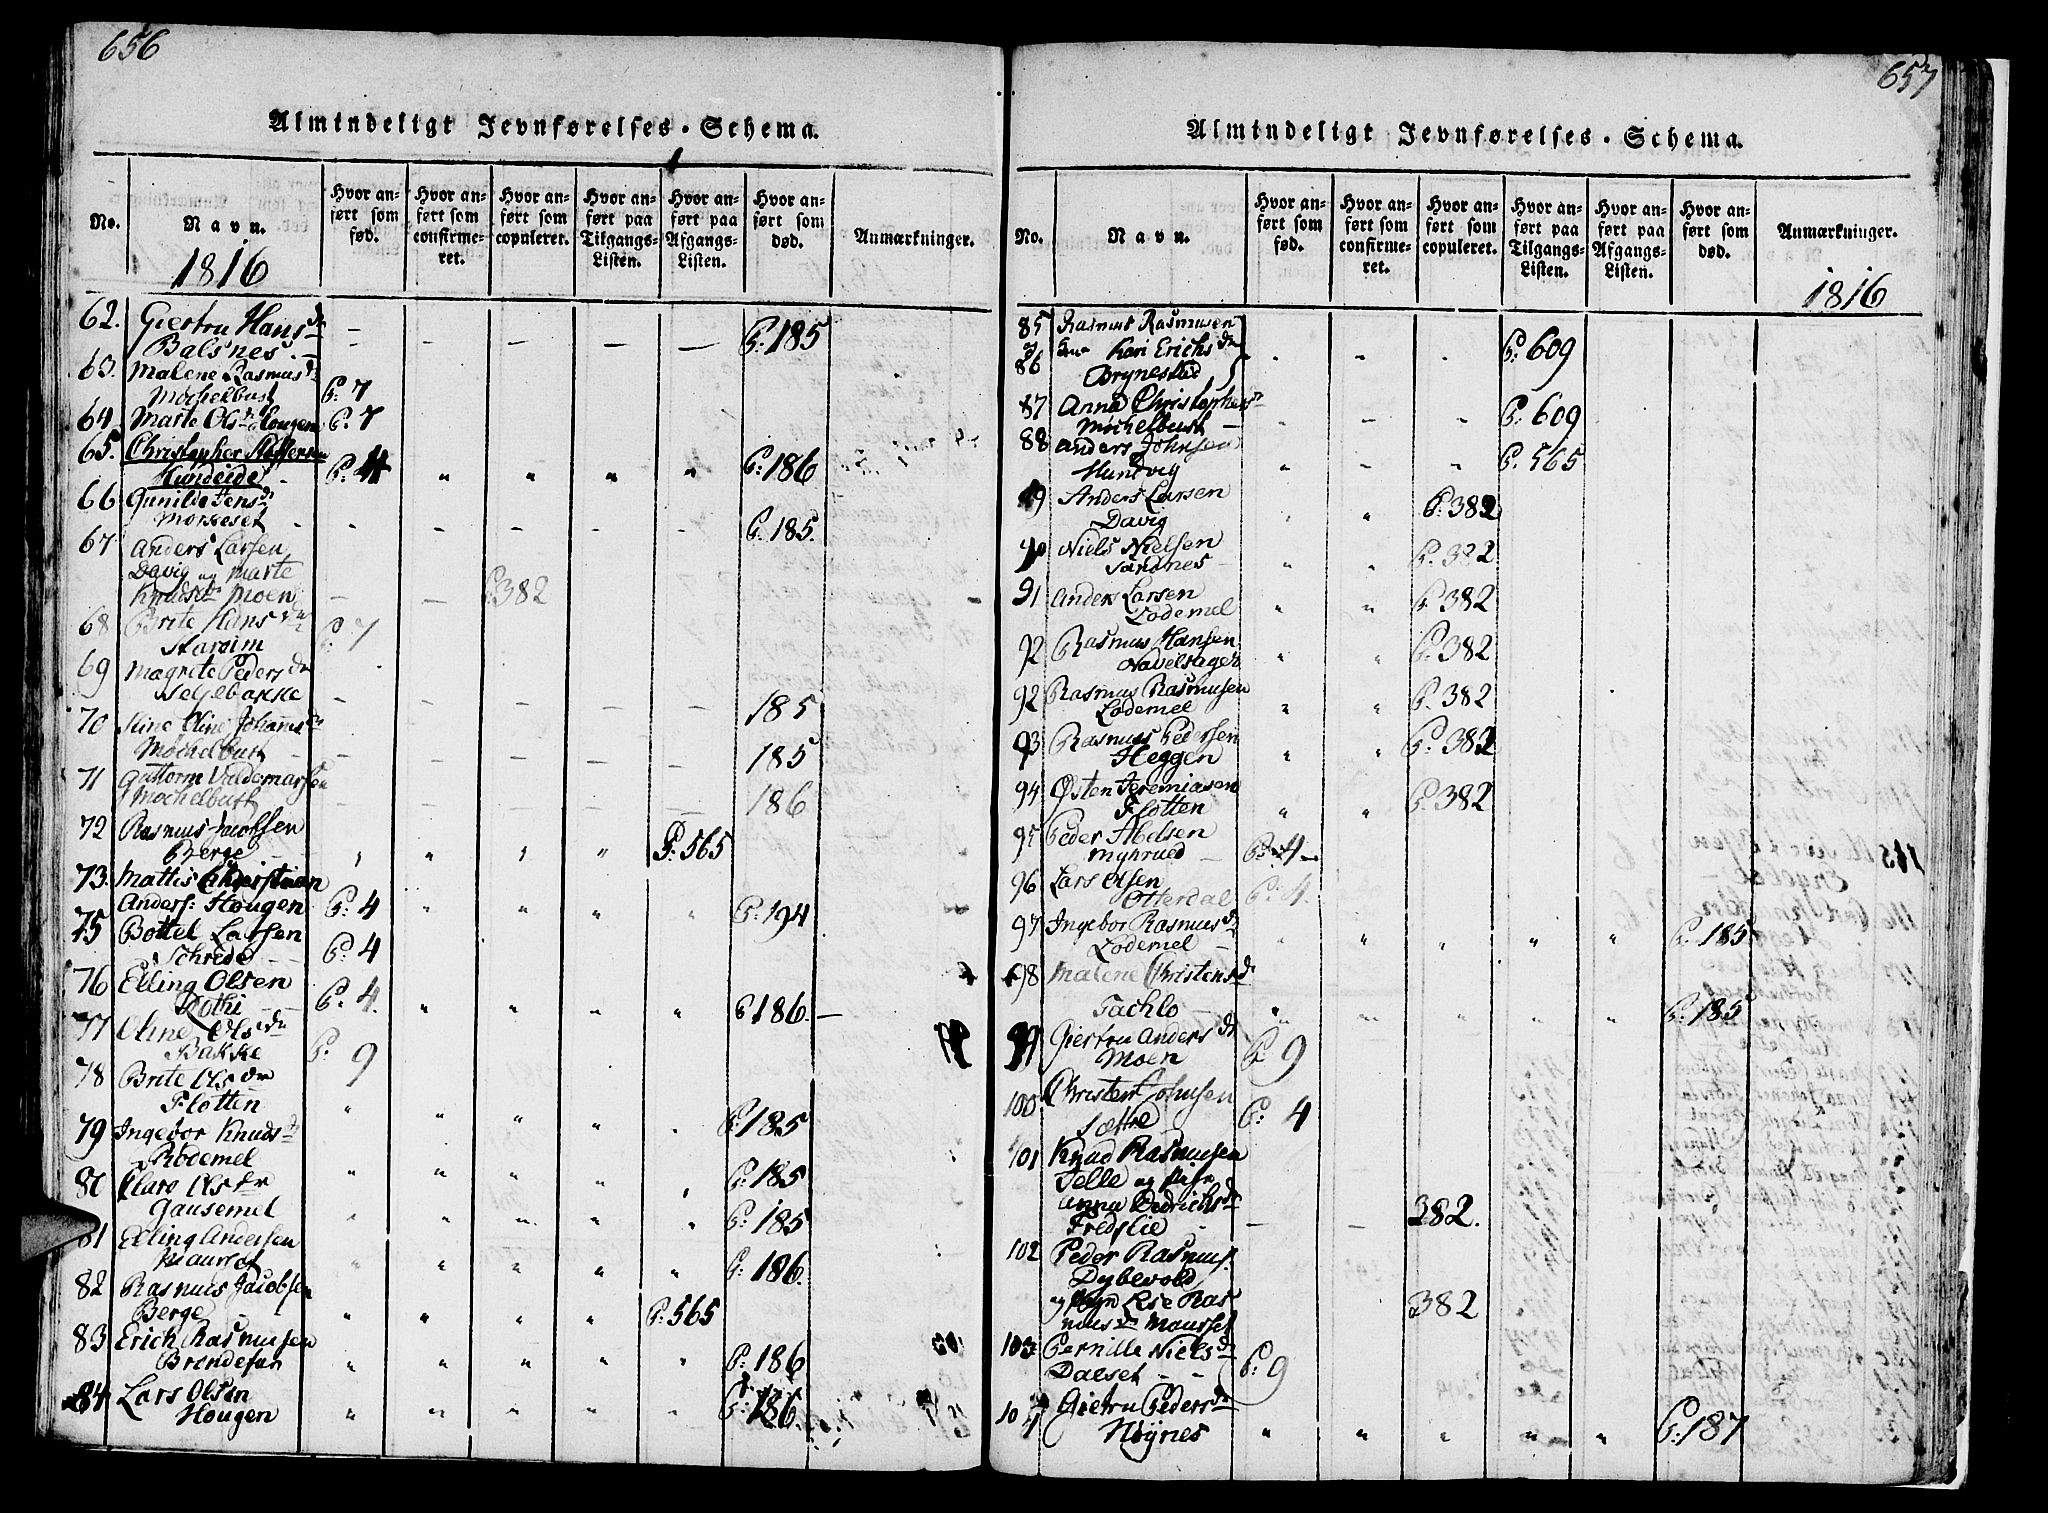 656
Almindeligt Jevnførelses-Schema.
No.
Navn.
1816
Hvor anført som fød.
Hvor anført som confirmeret.
Hvor anført som copuleret.
Hvor anført paa Tilgangs-Listen.
Hvor anført paa Afgangs-Listen.
Hvor anført som død.
Anmærkninger.
62. Giertru Hans dr
Balsnes. P: 185
63. Malene Rasmus dr
Mochelbust P: 7
64. Marte Ols dr Hougen P: 7
65. Christopher
Hundeide P: 4 P: 186
66 Gunilde Jens dr
Morkeset P: 185.
67 Anders Larsen
Davig og Marte
Knuds dr Moen P: 382
68 Brite Hans dr
Aarsim P: 7
69 Magrete Peders dr
Helsebakke 185
70 Oline Johans dr
Mochelbust 185
71 Guttorm Valdemarsen
Mochelbust 186
72 Rasmus Jacobsen
Berge P: 565
73. Mattis Christian
Anders: Hougen P: 4 P: 194
75 Bottel Larsen
Schrede P: 4
76 Elling Olsen
Rothi P: 4. P 186.
77 Oline Ols dr
Bakke P: 9
78 Brite Ols dr
Flotten P: 185
79 Ingebor Knuds dr
Rodemel P: 185
80 Ols dr
Gausemel P: 185
81 Elling Andersen
Maurset P: 186.
82 Rasmus Jacobsen
Berge P: 565
83 Erich Rasmusen
P: 186
84 Lars Olsen
Hougen P: 186.
657
Almindeligt Jevnførelses-Schema.
No.
Navn.
Hvor anført som fød.
Hvor anført som confirmeret.
Hvor anført som copuleret.
Hvor anført paa Tilgangs-Listen.
Hvor anført paa Afgangs-Listen.
Hvor anført som død.
Anmærkninger.
1816
85 Rasmus Rasmusen
86 Kari Erichs dr
Brynestad P: 609
87 Anna Christophers dr
Mochelbust P: 609
88 Anders Johnsen
Hundvig P. 565
89 Anders Larsen
Davig P: 382
90 Niels Nielsen
Sandnes P: 382
91 Anders Larsen
Lodemel P. 382
92 Rasmus Hansen
Navelsager P: 382
92 Rasmus Rasmusen
Lodemel P. 382
93 Rasmus Pedersen
Heggen P: 382
94 Østen Jeremiasen
Flotten P: 382
95 Peder Abelsen
Myhrued P: 4
96 Lars Olsen
Otterdal P: 4.
97 Ingebor Rasmus dr
Lodemel P: 185
98 Malene Christens dr
Tachlo P: 185
99 Giertru Anders dr
Moen P: 9
100 Christen Johnsen
Sættre P: 4
101 Knud Rasmusen
Telle og Pige
Anna Dedrichs dr
Fredslie 382.
102 Peder Rasmus:
Dybevold
og Pigen Else Ras
mus dr Maurset 382
103 Pernille Niels dr
Dalset P: 9
104 Giertru Peders dr
Høynes P: 187